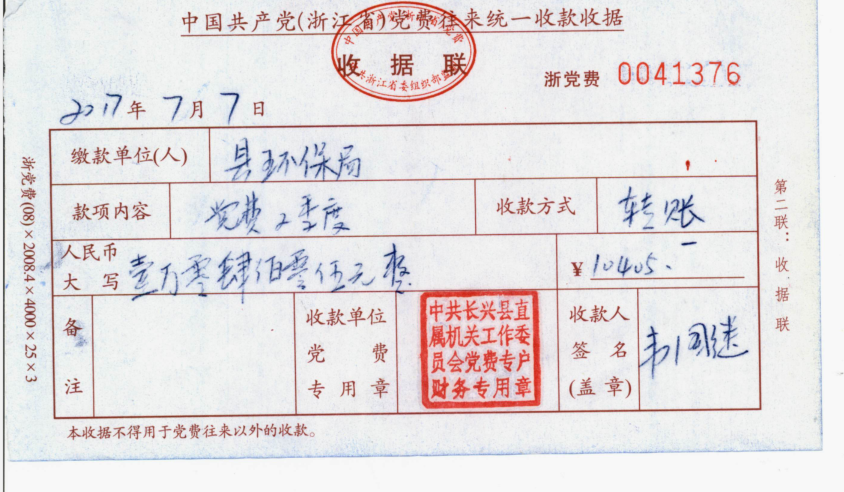 中国共产党(浙江省)党费往来统一收款收据
收据联
浙党费 0041376
2017年7月7日
缴款单位(人) 县环保局
款项内容 党费2季度 收款方式 转账
人民币大写 壹万零肆佰零伍元整 ¥10405.一
备注 收款单位党费专用章 收款人签名(盖章)
中共长兴县直
属机关工作委
员会党费专户
财务专用章
本收据不得用于党费往来以外的收款。
浙党费(08)×2008.4×4000×25×3
第二联：收据联